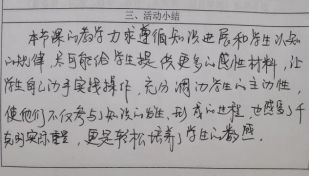 三、活动小结
本节课的教学力求遵循知识发展和学生认知
的规律，尽可能给学生提供更多的感性材料，让
学生自己动手实践操作，充分调动学生的主动性，
使他们不仅参与了知识的发生、形成的过程，也感受了千
克的实际重量，更是轻松培养了学生的数感。